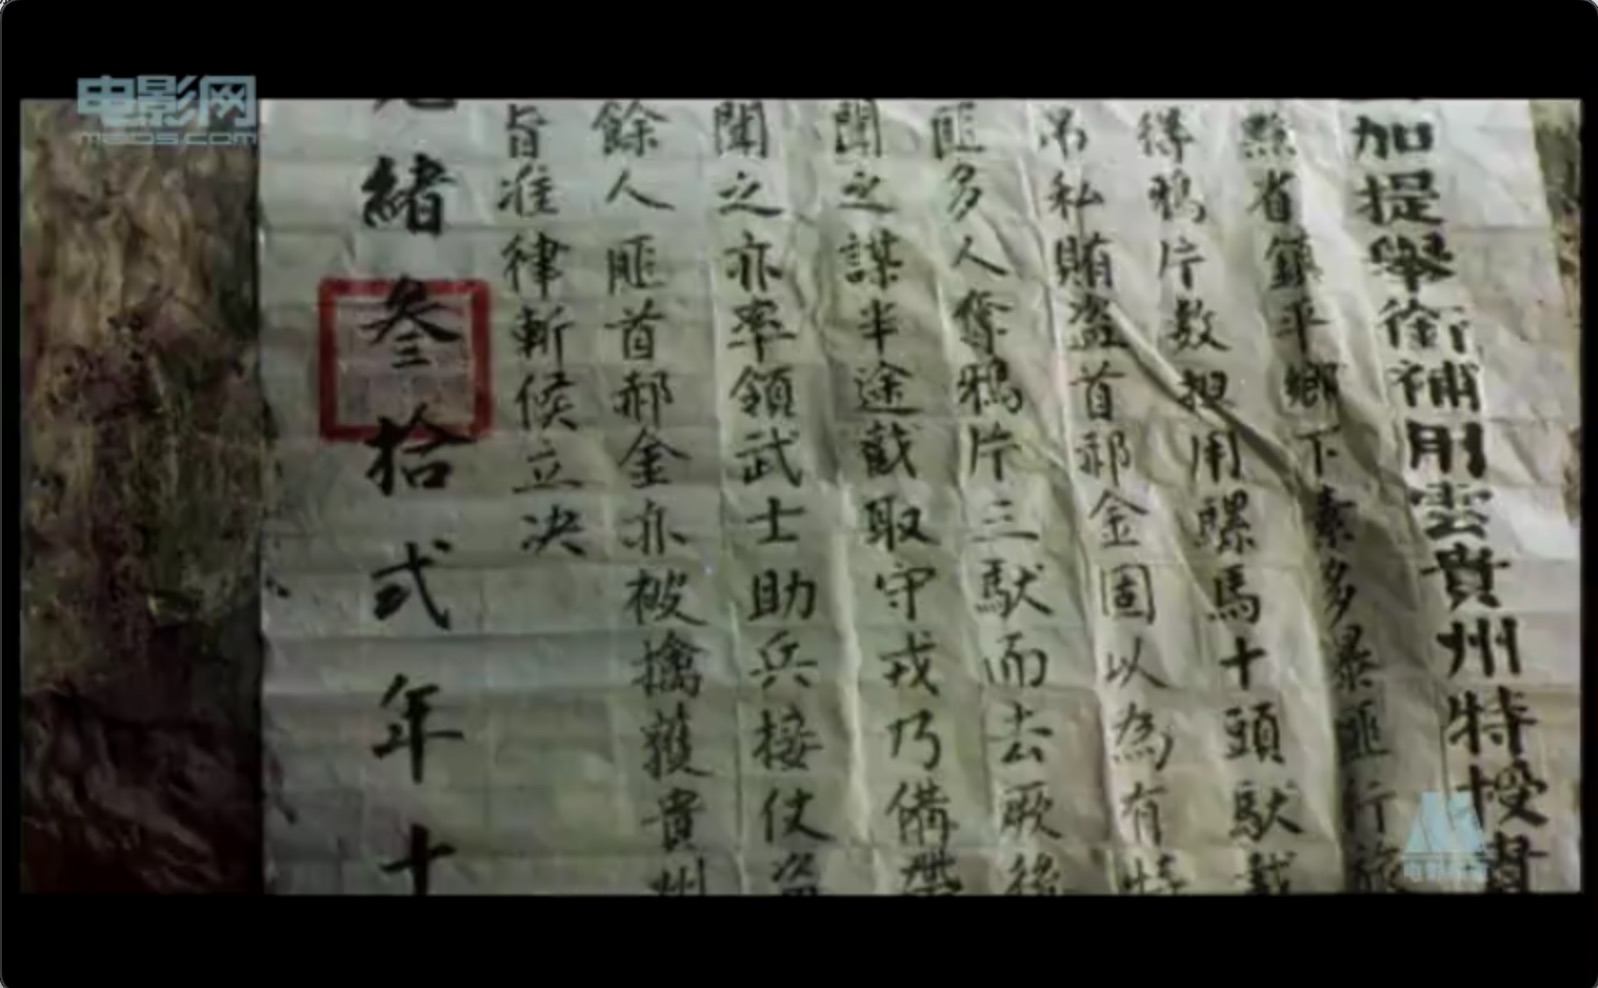 电影网
m1905.com
加提舉銜補用雲貴州特授督
黔省鎮平鄉下素多暴匪行旅
得鴉片数担用騾馬十頭馱載
吊私賄盗首郝金固以為有特
匪多人奪鴉片三馱而去厥後
聞之謀半途截取守戎乃備帶
聞之亦率領武士助兵接仗盗
餘人匪首郝金亦被擒獲貴州
旨准律斬候立决
緒叄拾弍年十